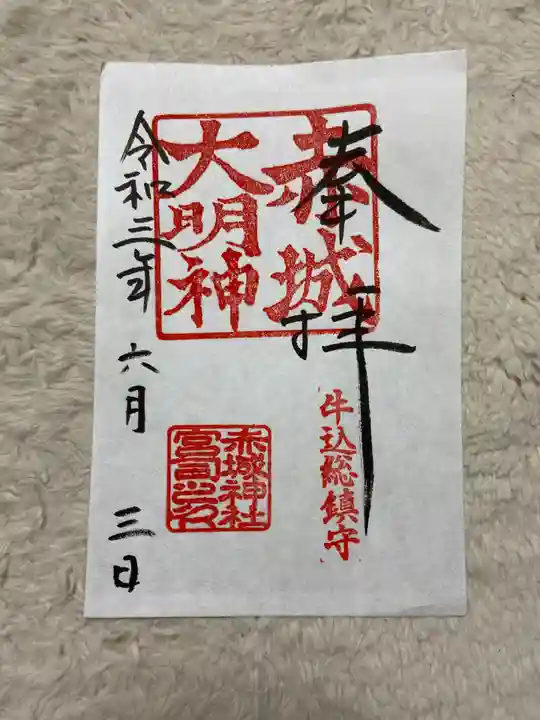 奉拝
赤城
大明神
牛込総鎮守
赤城神社
宮司之印
令和三年 六月 三日